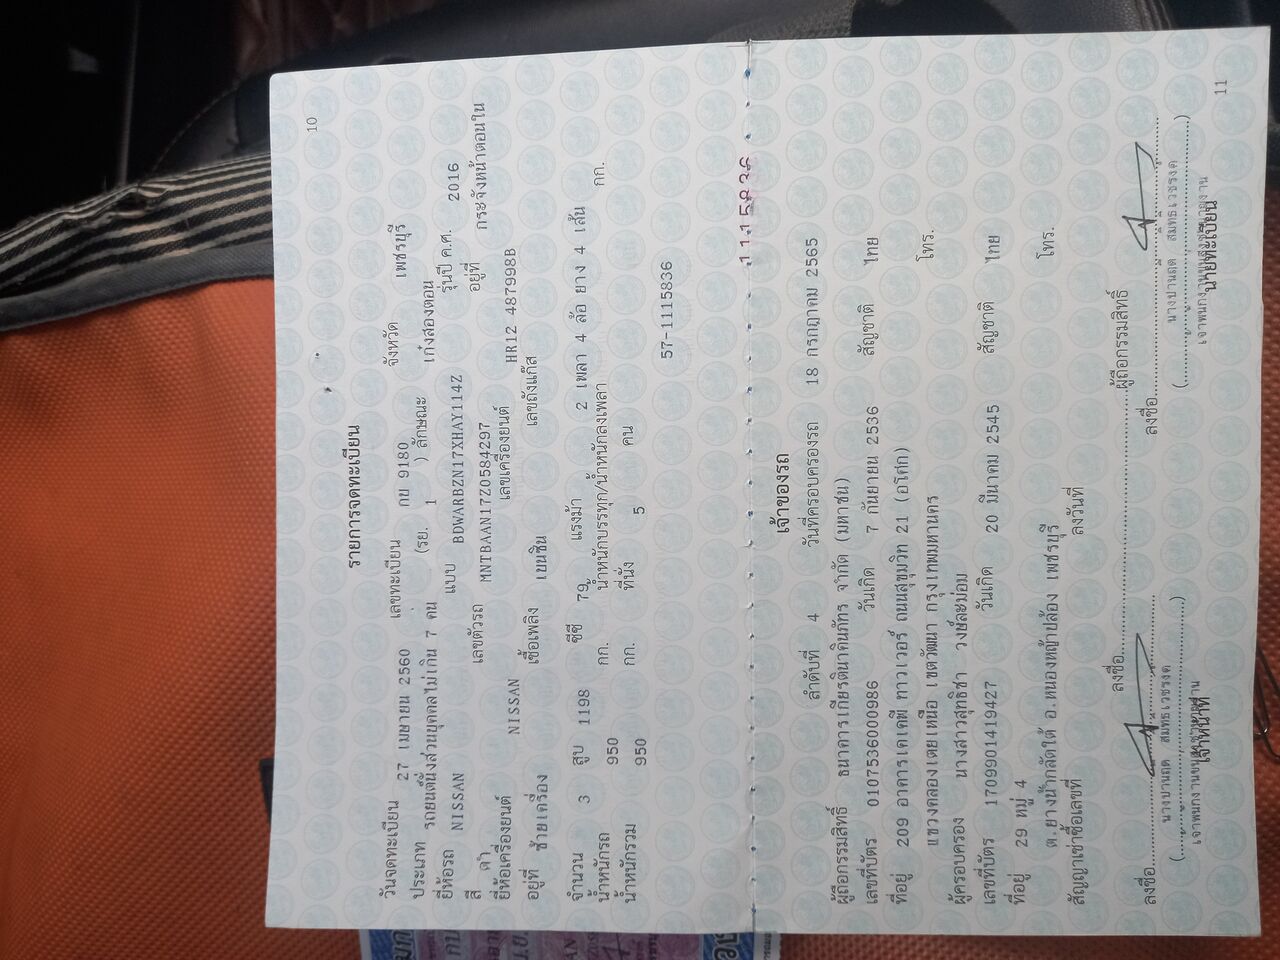 10
รายการจดทะเบียน
วันจดทะเบียน 27 เมษายน 2560 เลขทะเบียน กย 9180 จังหวัด เพชรบุรี
ประเภท รถยนต์นั่งส่วนบุคคลไม่เกิน 7 คน (รย. 1 ) ลักษณะ เก๋งสองตอน
ยี่ห้อรถ NISSAN แบบ BDWARBZN17XHAY114Z รุ่นปี ค.ศ. 2016
สี ดำ เลขตัวรถ MNTBAAN17Z0584297 อยู่ที่ กระจังหน้าตอนใน
ยี่ห้อเครื่องยนต์ NISSAN เลขเครื่องยนต์ HR12 487998B
อยู่ที่ ซ้ายเครื่อง เชื้อเพลิง เบนซิน เลขถังแก๊ส
จำนวน 3 สูบ 1198 ซีซี 79 แรงม้า 2 เพลา 4 ล้อ ยาง 4 เส้น
น้ำหนักรถ 950 กก. น้ำหนักบรรทุก/น้ำหนักลงเพลา กก.
น้ำหนักรวม 950 กก. ที่นั่ง 5 คน
57-1115836
1115836
เจ้าของรถ
ลำดับที่ 4 วันที่ครอบครองรถ 18 กรกฎาคม 2565
ผู้ถือกรรมสิทธิ์ ธนาคารเกียรตินาคินภัทร จำกัด (มหาชน)
เลขที่บัตร 0107536000986 วันเกิด 7 กันยายน 2536 สัญชาติ ไทย
ที่อยู่ 209 อาคารเคเคพี ทาวเวอร์ ถนนสุขุมวิท 21 (อโศก)
แขวงคลองเตยเหนือ เขตวัฒนา กรุงเทพมหานคร โทร.
ผู้ครอบครอง นางสาวสุทธิชา วงษ์ละม่อม
เลขที่บัตร 1709901419427 วันเกิด 20 มีนาคม 2545 สัญชาติ ไทย
ที่อยู่ 29 หมู่ 4
ต.ยางน้ำกลัดใต้ อ.หนองหญ้าปล้อง เพชรบุรี โทร.
สัญญาเช่าซื้อเลขที่ ลงวันที่
ลงชื่อ ผู้ถือกรรมสิทธิ์
ลงชื่อ ลงชื่อ
เจ้าหน้าที่ นายทะเบียน
11